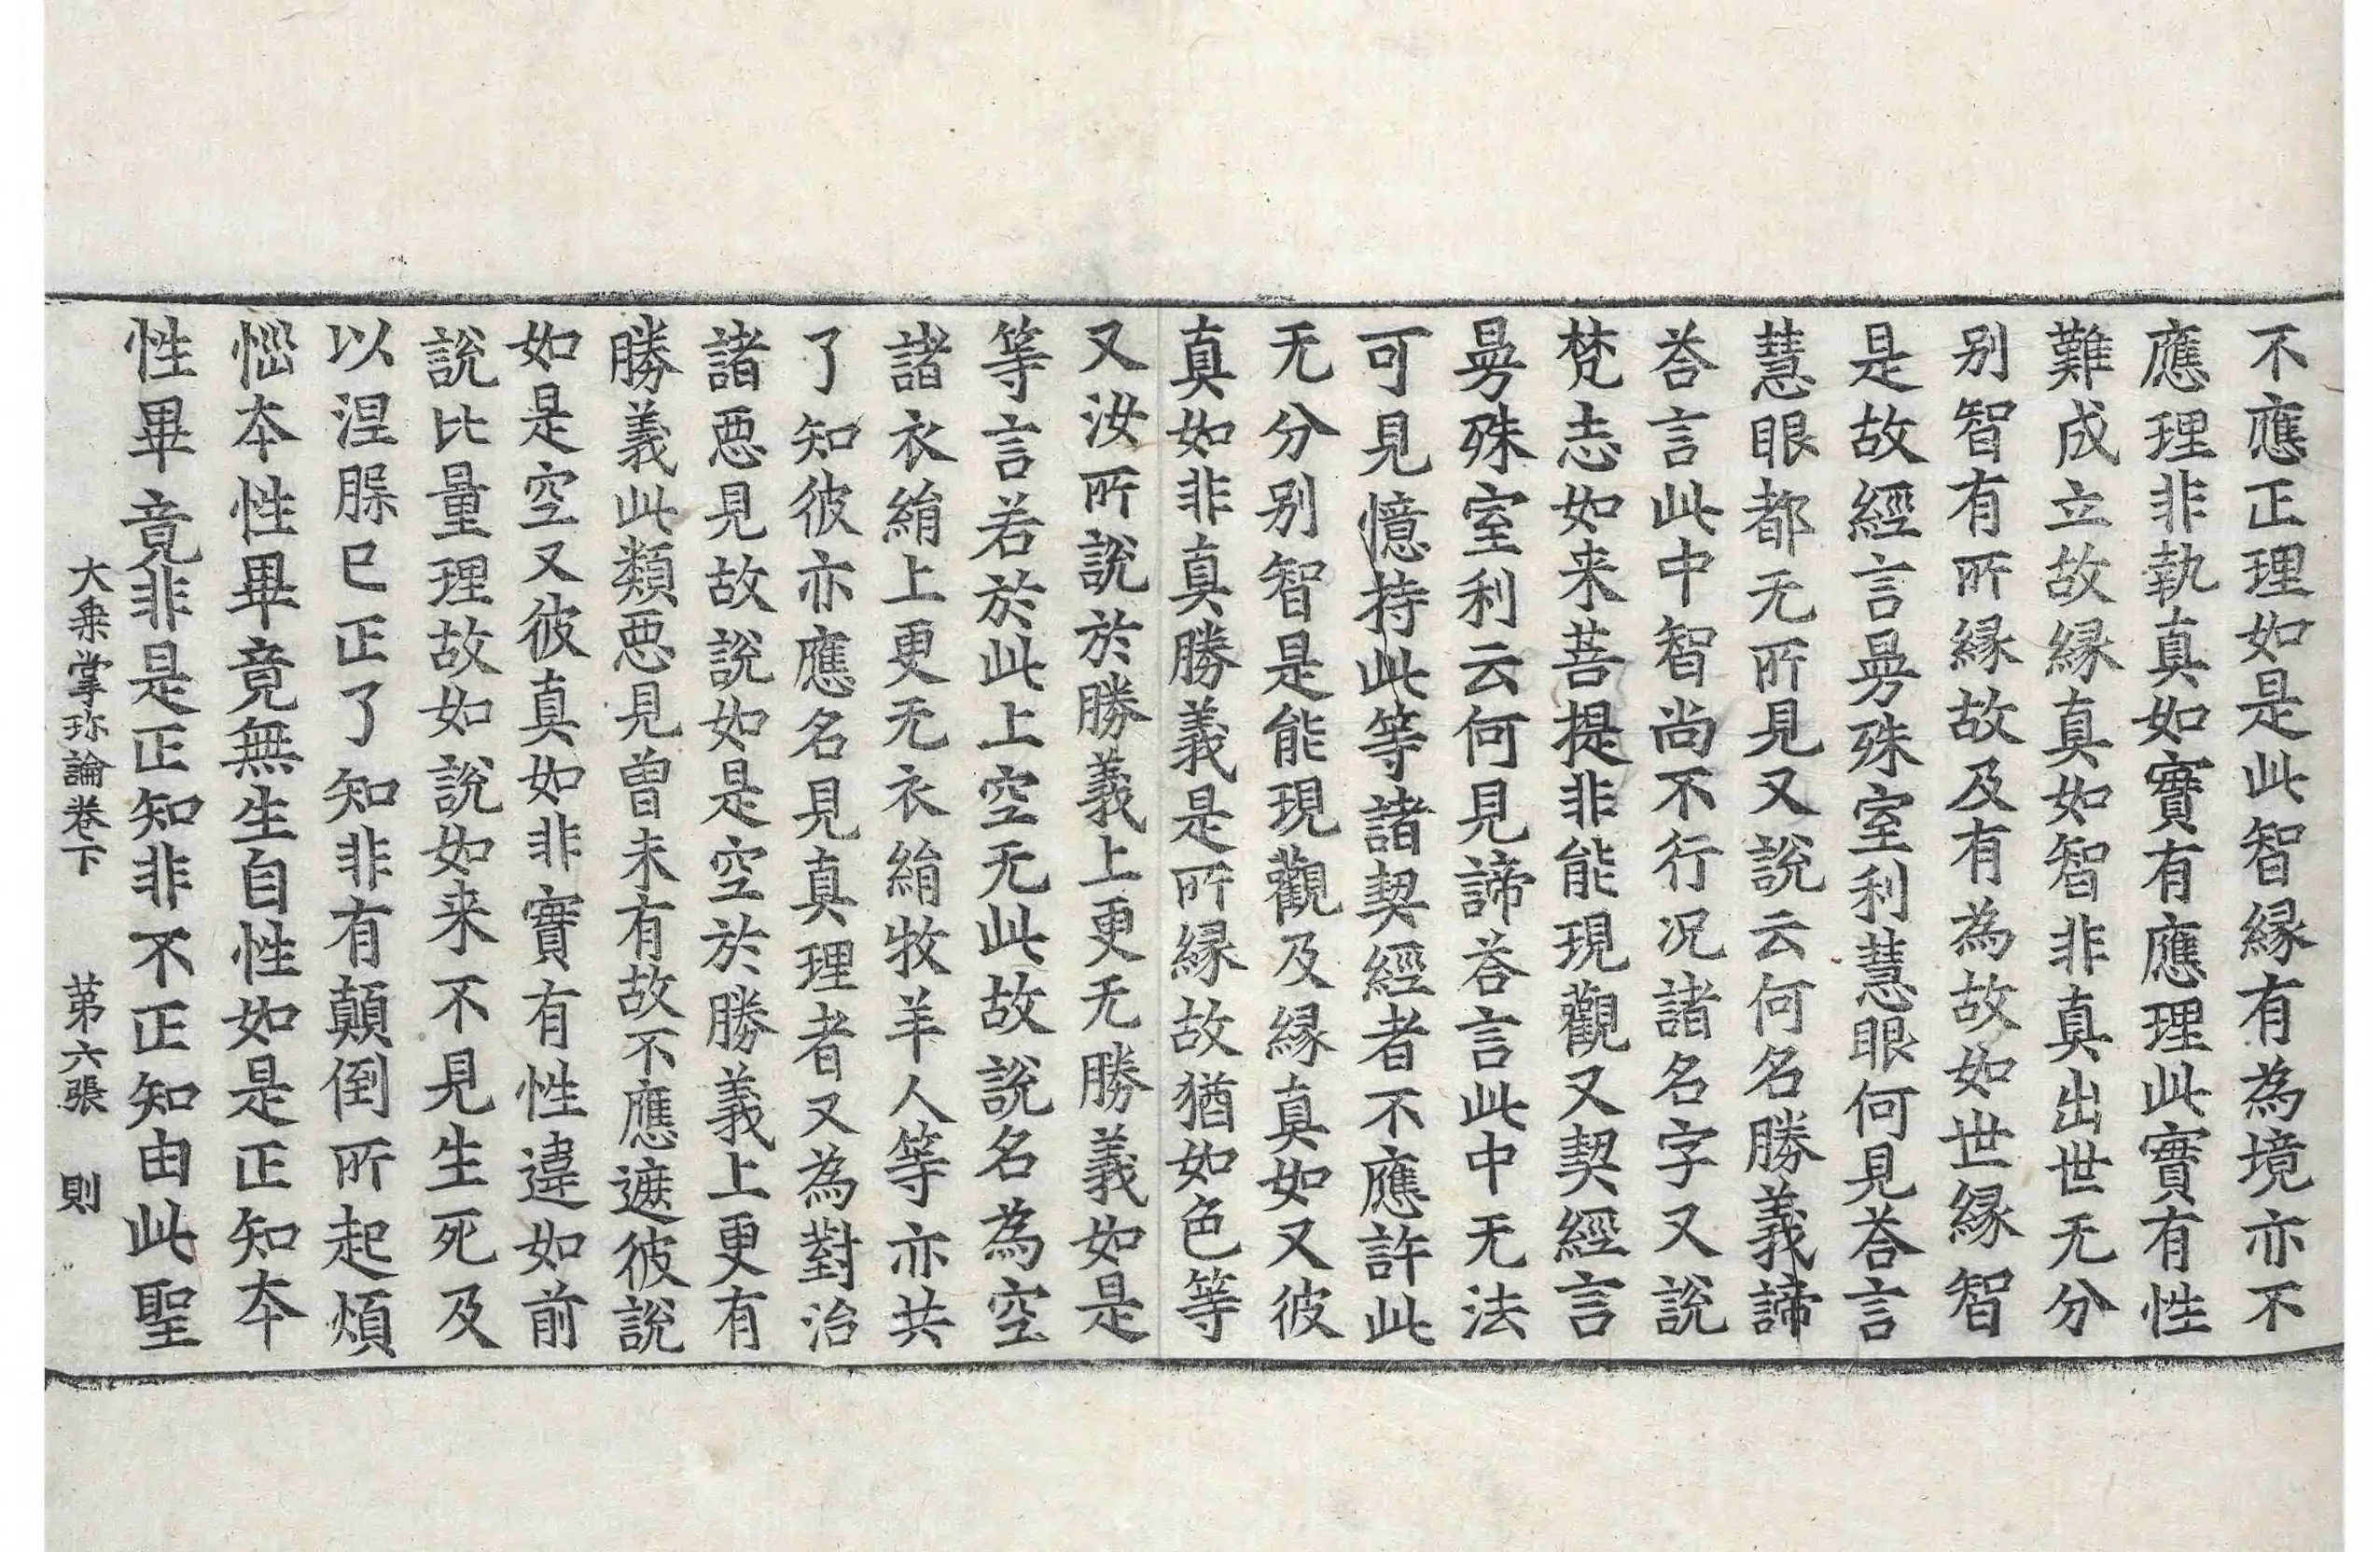 不應正理如是此智縁有為境亦不
應理非執真如實有應理此實有性
難成立故縁真如智非真出世无分
别智有所縁故及有為故如世縁智
是故經言曼殊室利慧眼何見荅言
慧眼都无所見又說云何名勝義諦
荅言此中智尚不行况諸名字又說
梵志如来菩提非能現觀又契經言
曼殊室利云何見諦荅言此中无法
可見憶持此等諸契經者不應許此
无分别智是能現觀及縁真如又彼
真如非真勝義是所縁故猶如色等
又汝所說於勝義上更无勝義如是
等言若於此上空无此故說名為空
諸衣絹上更无衣絹牧羊人等亦共
了知彼亦應名見真理者又為對治
諸恶見故說如是空於勝義上更有
勝義此類恶見曾未有故不應遮彼說
如是空又彼真如非實有性違如前
說比量理故如說如来不見生死及
以涅䐎巳正了知非有顛倒所起煩
惱本性畢竟無生自性如是正知本
性畢竟非是正知非不正知由此聖
大乗掌珎論卷下　第六張　則